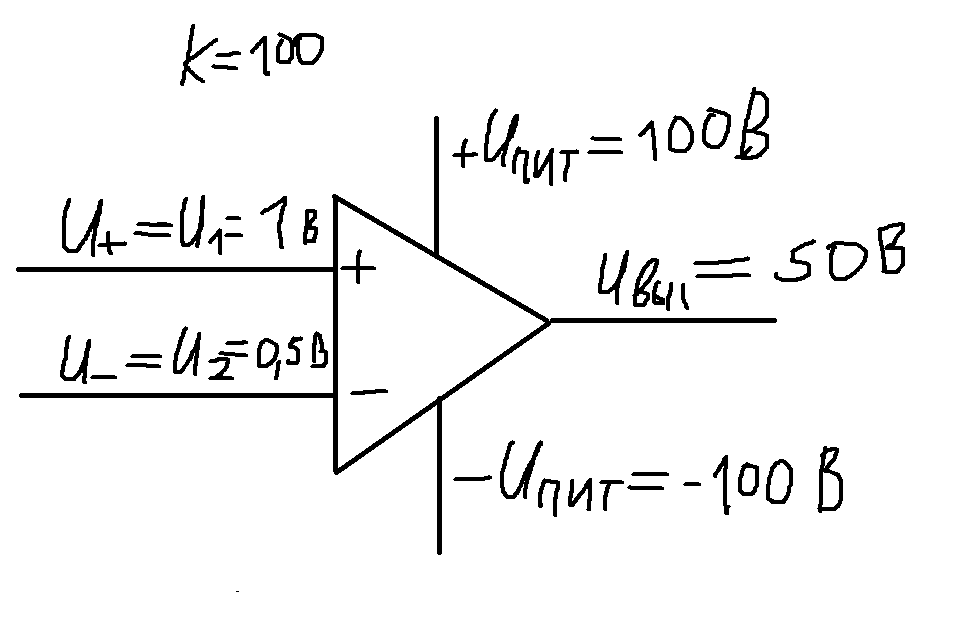 K=100
+Uпит=100В
U+=U1=1в
+
Uвых=50В
U-=U2=0,5В
-
-Uпит=-100 В